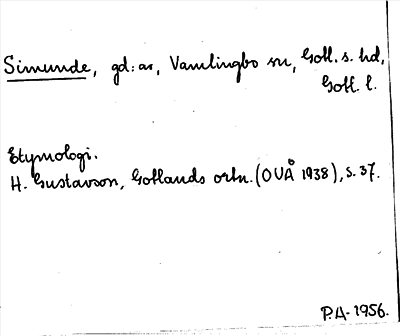 Simunde, gd:ar, Vamlingbo sn, Gotl. s. hd,
Gotl. l.
Etymologi.
H. Gustavson, Gotlands ortn. (OUÅ 1938), s. 37.
P.A-1956.